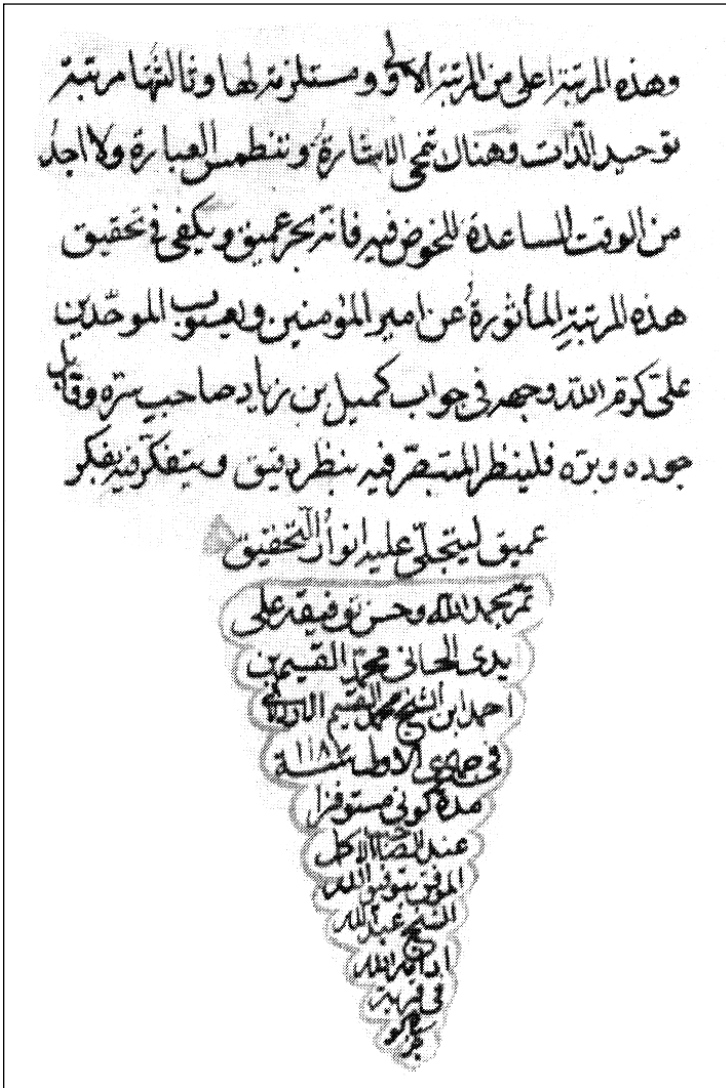 وهذه المرتبة اعلى من المرتبة الاولى ومستلزمة لها وثالثتها مرتبة
توحيد الذّات وهناك تنمحى الاشارة وتنطمس العبارة ولا اجد
من الوقت المساعدة للخوض فيه فانه بحر عميق ويكفى فى تحقيق
هذه المرتبةِ المأثورةُ عن امير المؤمنين ويعسوب الموحّدين
علىّ كرّم اللّه وجهه فى جواب كميل بن زياد صاحب سرّه وقابل
جوده وبرّه فلينظر المتبصّر فيه بنظر دقيق ويتفكّر فيه بفكر
عميق ليتجلّى عليه انوار التحقيق
تمّ بحمد اللّه وحسن توفيقه على
يدى الجانى محمّد القسيم بن
احمد ابن الشيخ محمد القسيم
فى جمادى سنة ١١٨
مدة كونى مستوفزا
عند الاكل
الموفق بتوفيق اللّه
الشيخ عبد اللّه
ادامه اللّه
فى قرية